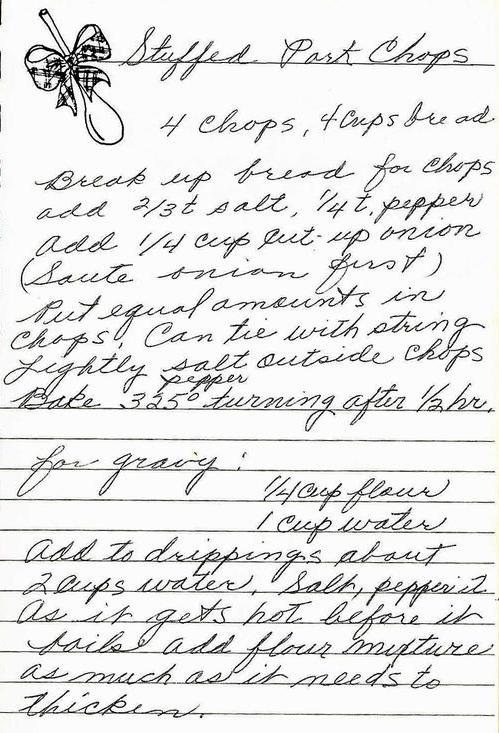 Stuffed Pork Chops
4 chops, 4 cups bread
Break up bread for chops
add 2/3 t salt, 1/4 t. pepper
add 1/4 cup cut-up onion
(Saute onion first)
Put equal amounts in
chops. Can tie with string
Lightly salt outside chops
pepper
Bake 325° turning after 1/2 hr.
for gravy:
1/4 cup flour
1 cup water
Add to drippings about
2 cups water. Salt, pepper it
As it gets hot before it
boils add flour mixture
as much as it needs to
thicken.